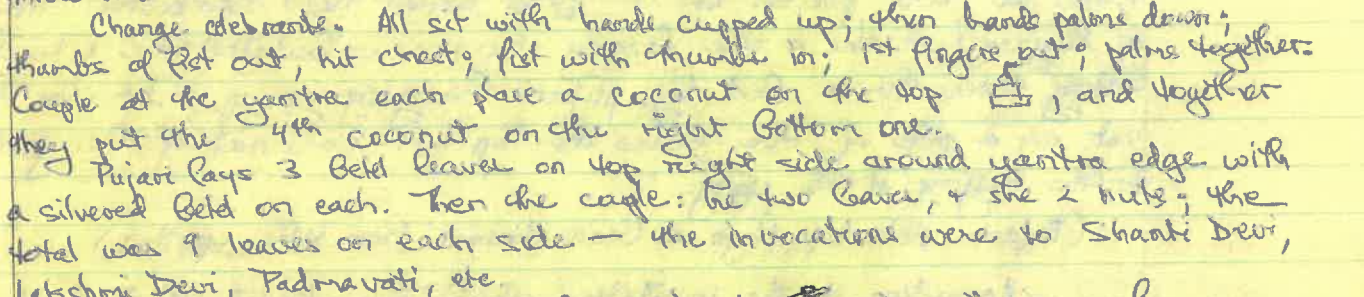 Change celebrants. All sit with hands cupped up; then hands palms down;
thumbs of fist out, hit chest; fist with thumbs in; 1st fingers out; palms together.
Couple at the yantra each place a coconut on the top , and together
they put the 4th coconut on the right bottom one.
Pujari lays 3 betel leaves on top right side around yantra edge with
a silvered betel on each. Then the couple: he two leaves, + she 2 nuts; the
total was 9 leaves on each side — the invocations were to Shanti Devi,
Lakshmi Devi, Padmavati, etc.